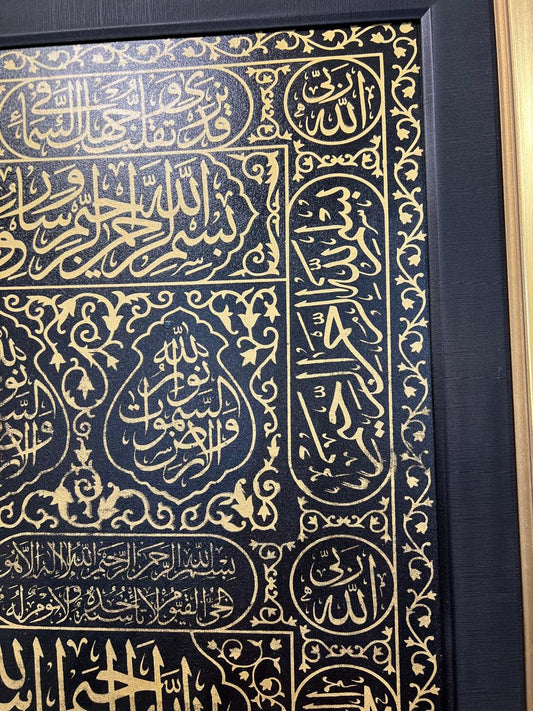 قد نرى تقلب وجهك في السماء
الله ربي
بسم الله الرحمن الرحيم
بسم الله الرحمن الرحيم وسارعوا
الله نور السموات والارض
بسم الله الرحمن الرحيم الله لا اله الا هو
الحي القيوم لا تأخذه سنة ولا نوم له
الله ربي